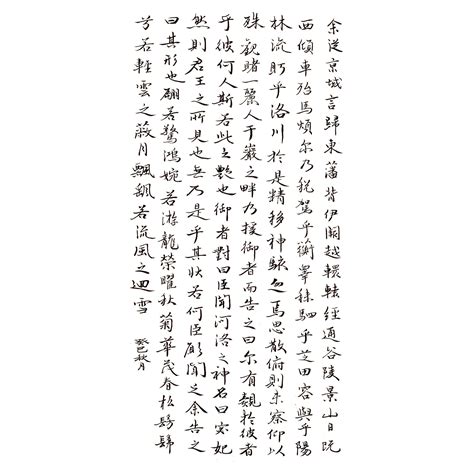 余從京城言歸東藩背伊闕越轘轅經通谷陵景山日既
西傾車殆馬煩尔乃稅駕乎蘅皋秣駟乎芝田容與乎陽
林流眄乎洛川於是精移神駭忽焉思散俯則未察仰以
殊觀睹一麗人于巖之畔乃援御者而告之曰尔有覿於彼者
乎彼何人斯若此之艷也御者對曰臣聞河洛之神名曰宓妃
然則君王之所見也無乃是乎其狀若何臣願聞之余告之
曰其形也翩若驚鴻婉若游龍榮曜秋菊華茂春松髣髴
兮若輕雲之蔽月飄飖若流風之迴雪
癸巳秋月